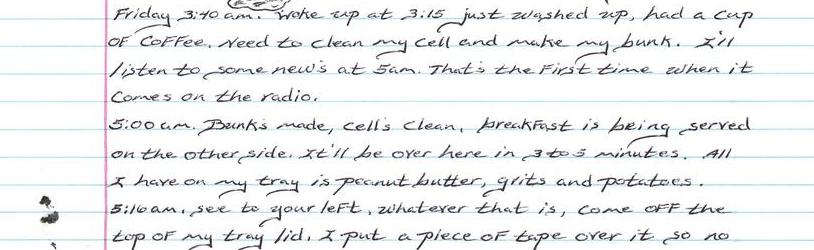 Friday 3:40 am. Woke up at 3:15 just washed up, had a cup
OF CoFFee. Need to clean my cell and make my bunk. I'll
listen to some new's at 5am. That's the First time when it
comes on the radio.
5:00 am. Bunk's made, cell's clean, breakFast is being served
on the other side. It'll be over here in 3 to 5 minutes. All
I have on my tray is peanut butter, grits and potatoes.
5:16 am. see to your left, whatever that is, come OFF the
top OF my tray lid. I put a piece OF tape over it so no